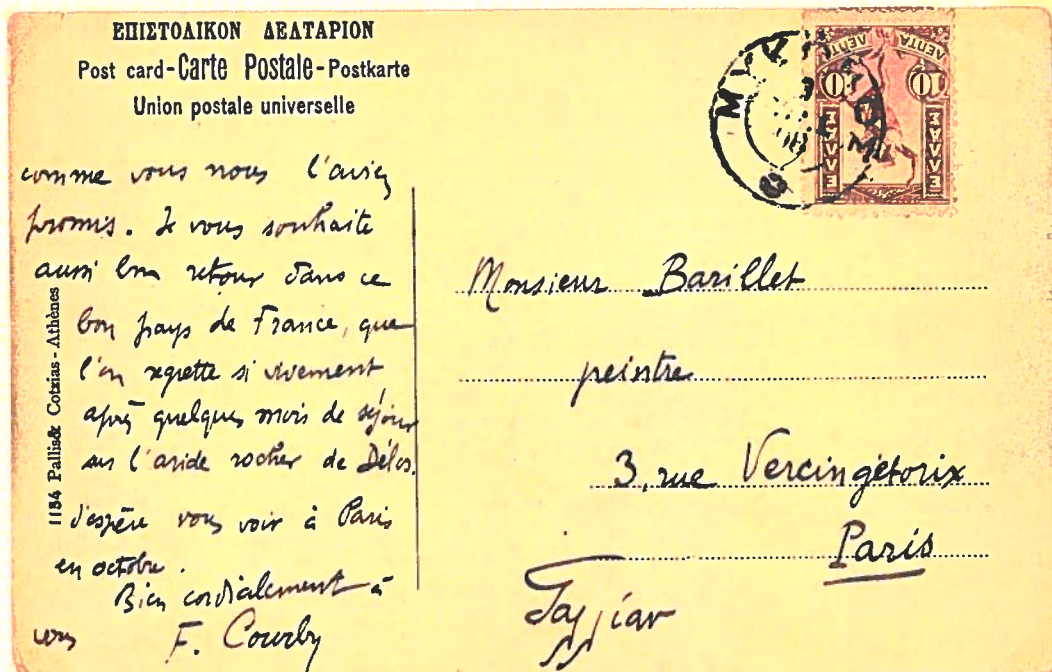 ΕΠΙΣΤΟΛΙΚΟΝ ΔΕΛΤΑΡΙΟΝ
Post card-Carte Postale-Postkarte
Union postale universelle
comme vous nous l'aviez
promis. Je vous souhaite
aussi bon retour dans ce
bon pays de France, que
l'on regrette si vivement
après quelques mois de séjour
sur l'aride rocher de Délos.
J'espère vous voir à Paris
en octobre.
Bien cordialement à
vous F. Courby
1184 Pallis& Cotzias-Athènes
ΛΕΠΤΑ ΛΕΠΤΑ
10 10
ΕΛΛΑΣ ΕΛΛΑΣ
Monsieur Barillet
peintre
3, rue Vercingétorix
Paris